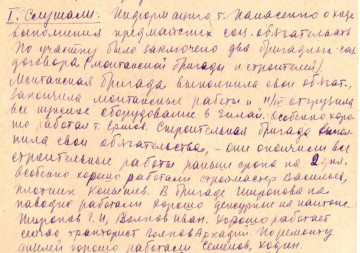 I. Слушали: Информация т. Панасенко о ходе
выполнения предмайских соц. обязательств
По участку было заключено два бригадных соц.
договора (монтажной бригады и строителей)
Монтажная бригада выполнила свои обязат.,
закончила монтажные работы и 11/IV отгрузила
все нужное оборудование в Зилай. Особенно хоро-
шо работал т. Ершов. Строительная бригада выпол-
нила свои обязательства, - они окончили все
строительные работы раньше срока на 2 дня.
Особенно хорошо работали строймастер Васильев,
плотник В бригаде Широкова на
паводке работали хорошо дежурные на понтоне
Широков Г.И, Волков Иван. Хорошо работает
сейчас тракторист Аркадий. По ремонту
хорошо работали Семенов,